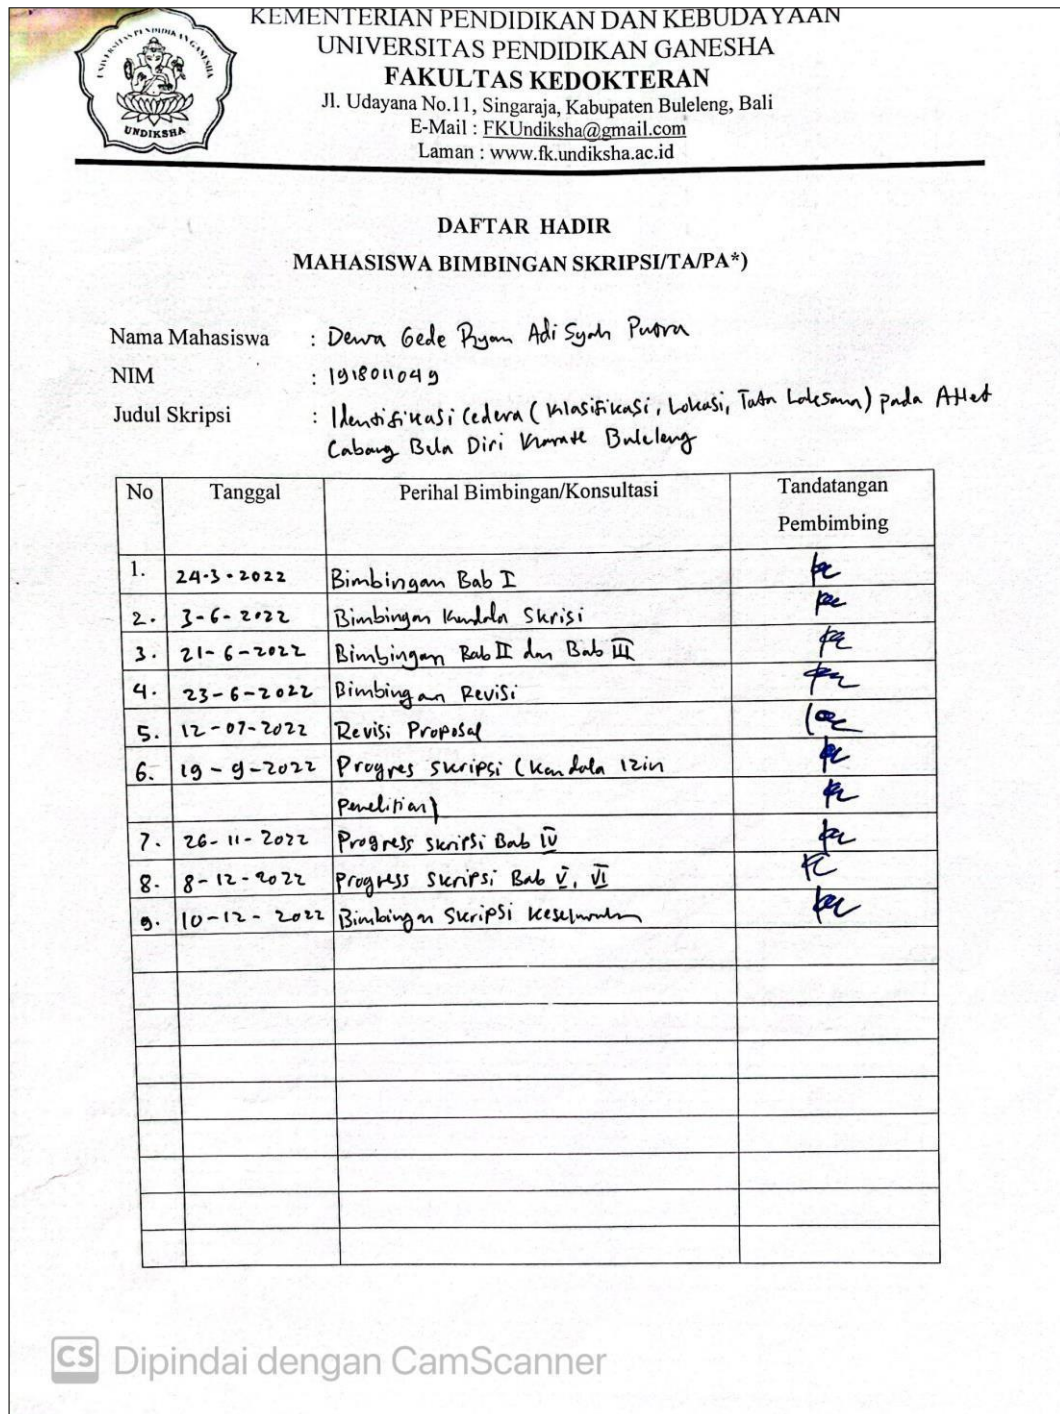 KEMENTERIAN PENDIDIKAN DAN KEBUDAYAAN
UNIVERSITAS PENDIDIKAN GANESHA
FAKULTAS KEDOKTERAN
Jl. Udayana No.11, Singaraja, Kabupaten Buleleng, Bali
E-Mail : FKUndiksha@gmail.com
Laman : www.fk.undiksha.ac.id
UNIVERSITAS PENDIDIKAN GANESHA
UNDIKSHA
DAFTAR HADIR
MAHASISWA BIMBINGAN SKRIPSI/TA/PA*)
Nama Mahasiswa : Dewa Gede Ryan Adi Syah Putra
NIM : 1918011049
Judul Skripsi : Identifikasi Cedera (Klasifikasi, Lokasi, Tata Laksana) pada Atlet
Cabang Bela Diri Karate Buleleng
No Tanggal Perihal Bimbingan/Konsultasi Tandatangan
Pembimbing
1. 24-3-2022 Bimbingan Bab I
2. 3-6-2022 Bimbingan Kendala Skrisi
3. 21-6-2022 Bimbingan Bab II dan Bab III
4. 23-6-2022 Bimbingan Revisi
5. 12-07-2022 Revisi Proposal
6. 19-9-2022 Progres skripsi (Kendala izin
penelitian)
7. 26-11-2022 Progress skripsi Bab IV
8. 8-12-2022 Progress skripsi Bab V, VI
9. 10-12-2022 Bimbingan Skripsi
CS Dipindai dengan CamScanner